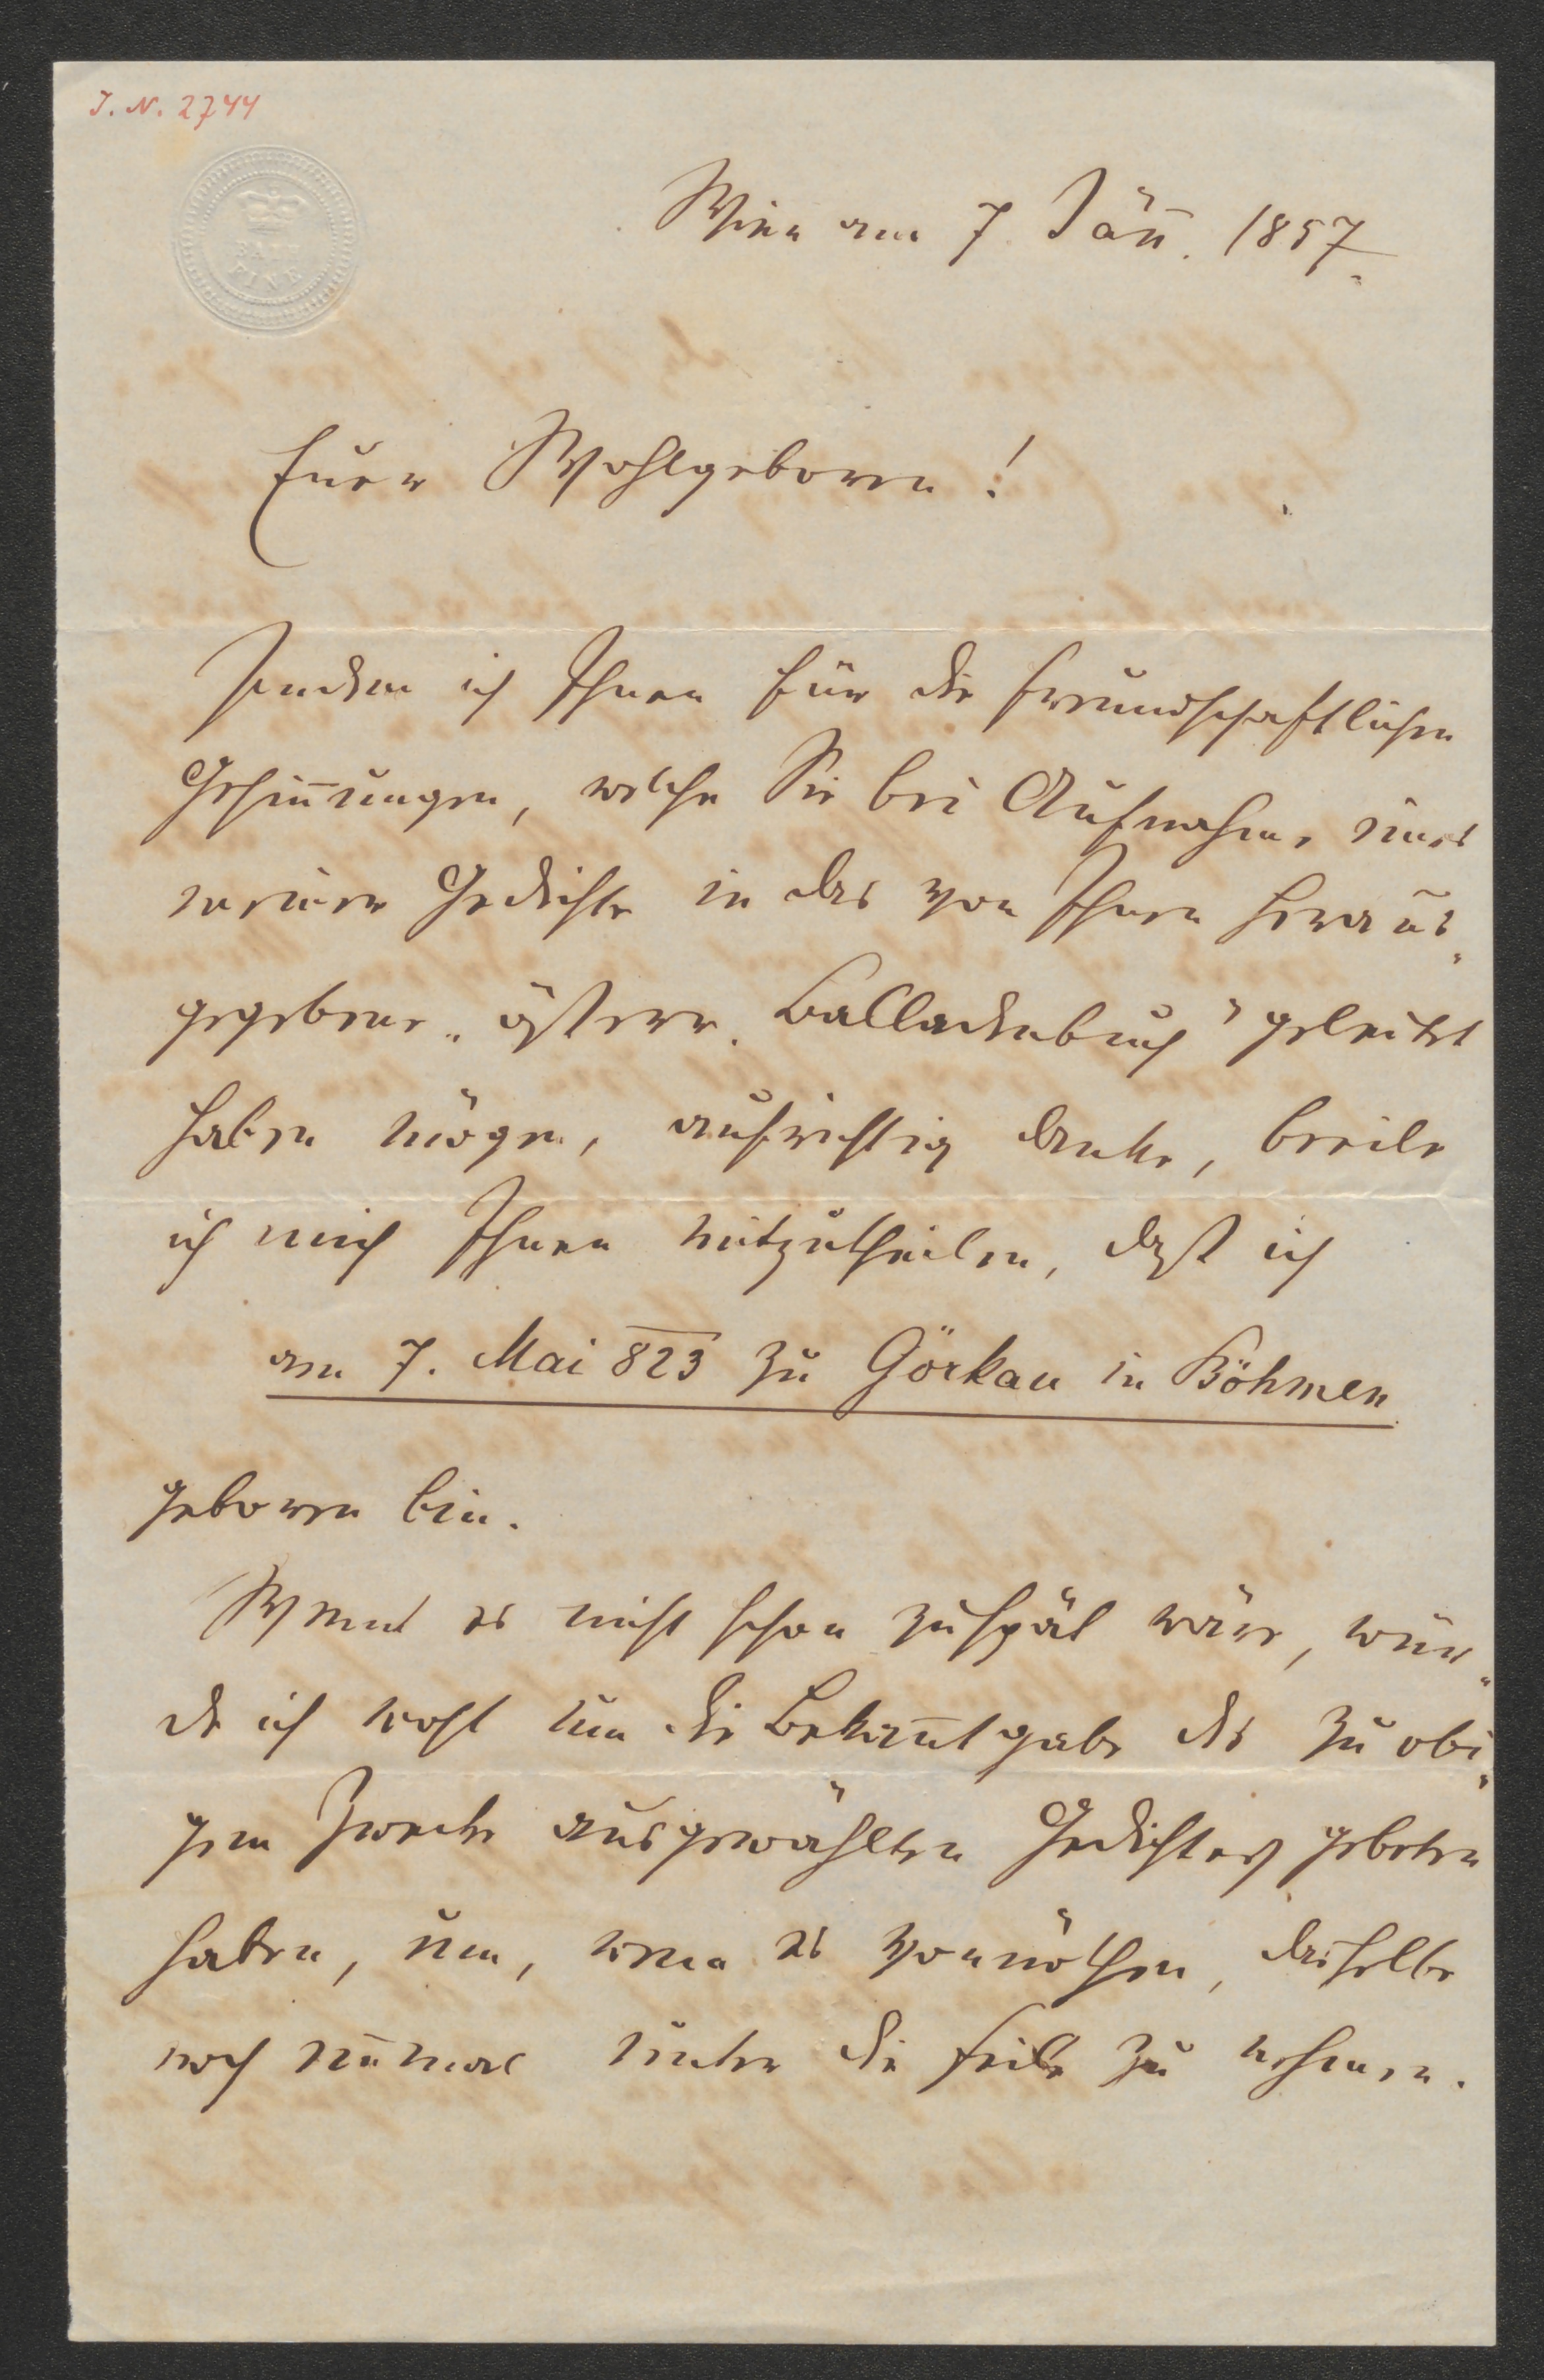 I. N. 2744
BATH
FINE
Wien am 7. Jän̄. 1857.
Euer Wohlgeboren!
Indem ich Ihnen für die freundschaftlichen
Gesin̄ungen, welche Sie bei Aufnahme eines
meiner Gedichte in das von Ihnen heraus„
gegebene „österr. Balladenbuch" geleitet
haben mögen, aufrichtig danke, beeile
ich mich Ihnen mitzutheilen, daß ich
am 7. Mai 823 zu Görkau in Böhmen
geboren bin.
Wenn es nicht schon zuspät wäre, wür„
de ich wohl um die Bekan̄tgabe des zu obi„
gem Zwecke ausgewählten Gedichtes gebeten
haben, um, wenn es vonnöthen, dasselbe
noch ein̄mal unter die Feile zu nehmen.